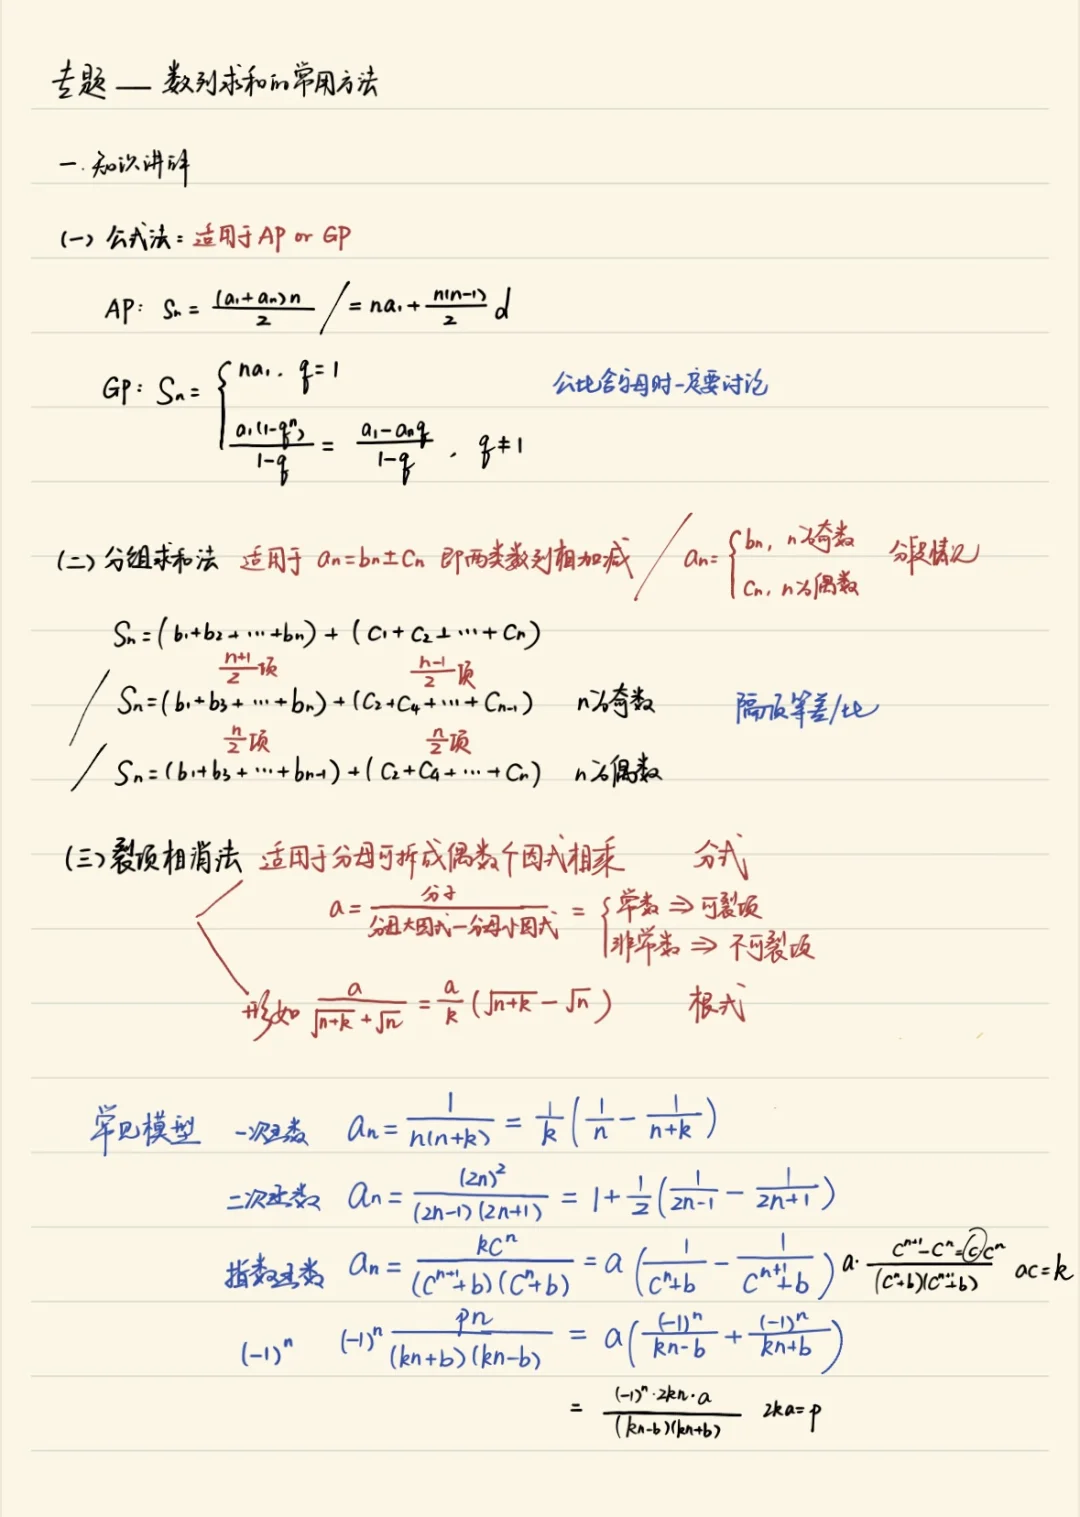 专题 — 数列求和的常用方法
一. 知识讲解
(一) 公式法: 适用于 AP or GP
AP: Sn = (a₁+aₙ)n / 2 / = na₁ + n(n-1)/2 d
GP: Sn = { na₁. q=1
a₁(1-qⁿ)/(1-q) = (a₁-aₙq)/(1-q) . q≠1
公比含字母时一定要讨论
(二) 分组求和法 适用于 an=bn±Cn 即两类数列相加减 / an= { bn, n为奇数
Cn, n为偶数 分段情况
Sn=(b₁+b₂+…+bn)+(C₁+C₂+…+Cn)
n+1/2 项 n-1/2 项
/ Sn=(b₁+b₃+…+bn)+(C₂+C₄+…+Cn-1) n为奇数 隔项等差/比
n/2 项 n/2 项
/ Sn=(b₁+b₃+…+bn-1)+(C₂+C₄+…+Cn) n为偶数
(三) 裂项相消法 适用于分母可拆成偶数个因式相乘 分式
a = 分子 / 分母大因式-分母小因式 = { 常数 ⇒ 可裂项
非常数 ⇒ 不可裂项
形如 a/(√(n+k)+√n) = a/k (√(n+k) - √n) 根式
常见模型 一次函数 an = 1/(n(n+k)) = 1/k (1/n - 1/(n+k))
二次函数 an = (2n)²/((2n-1)(2n+1)) = 1+1/2(1/(2n-1) - 1/(2n+1))
指数函数 an = kCⁿ/((Cⁿ⁺¹+b)(Cⁿ+b)) = a (1/(Cⁿ+b) - 1/(Cⁿ⁺¹+b)) a· (Cⁿ⁺¹-Cⁿ=(C)Cⁿ)/((Cⁿ+b)(Cⁿ⁺¹+b)) ac=k
(-1)ⁿ (-1)ⁿ pn/((kn+b)(kn-b)) = a((-1)ⁿ/(kn-b) + (-1)ⁿ/(kn+b))
= (-1)ⁿ·2kn·a/((kn-b)(kn+b)) 2ka=p